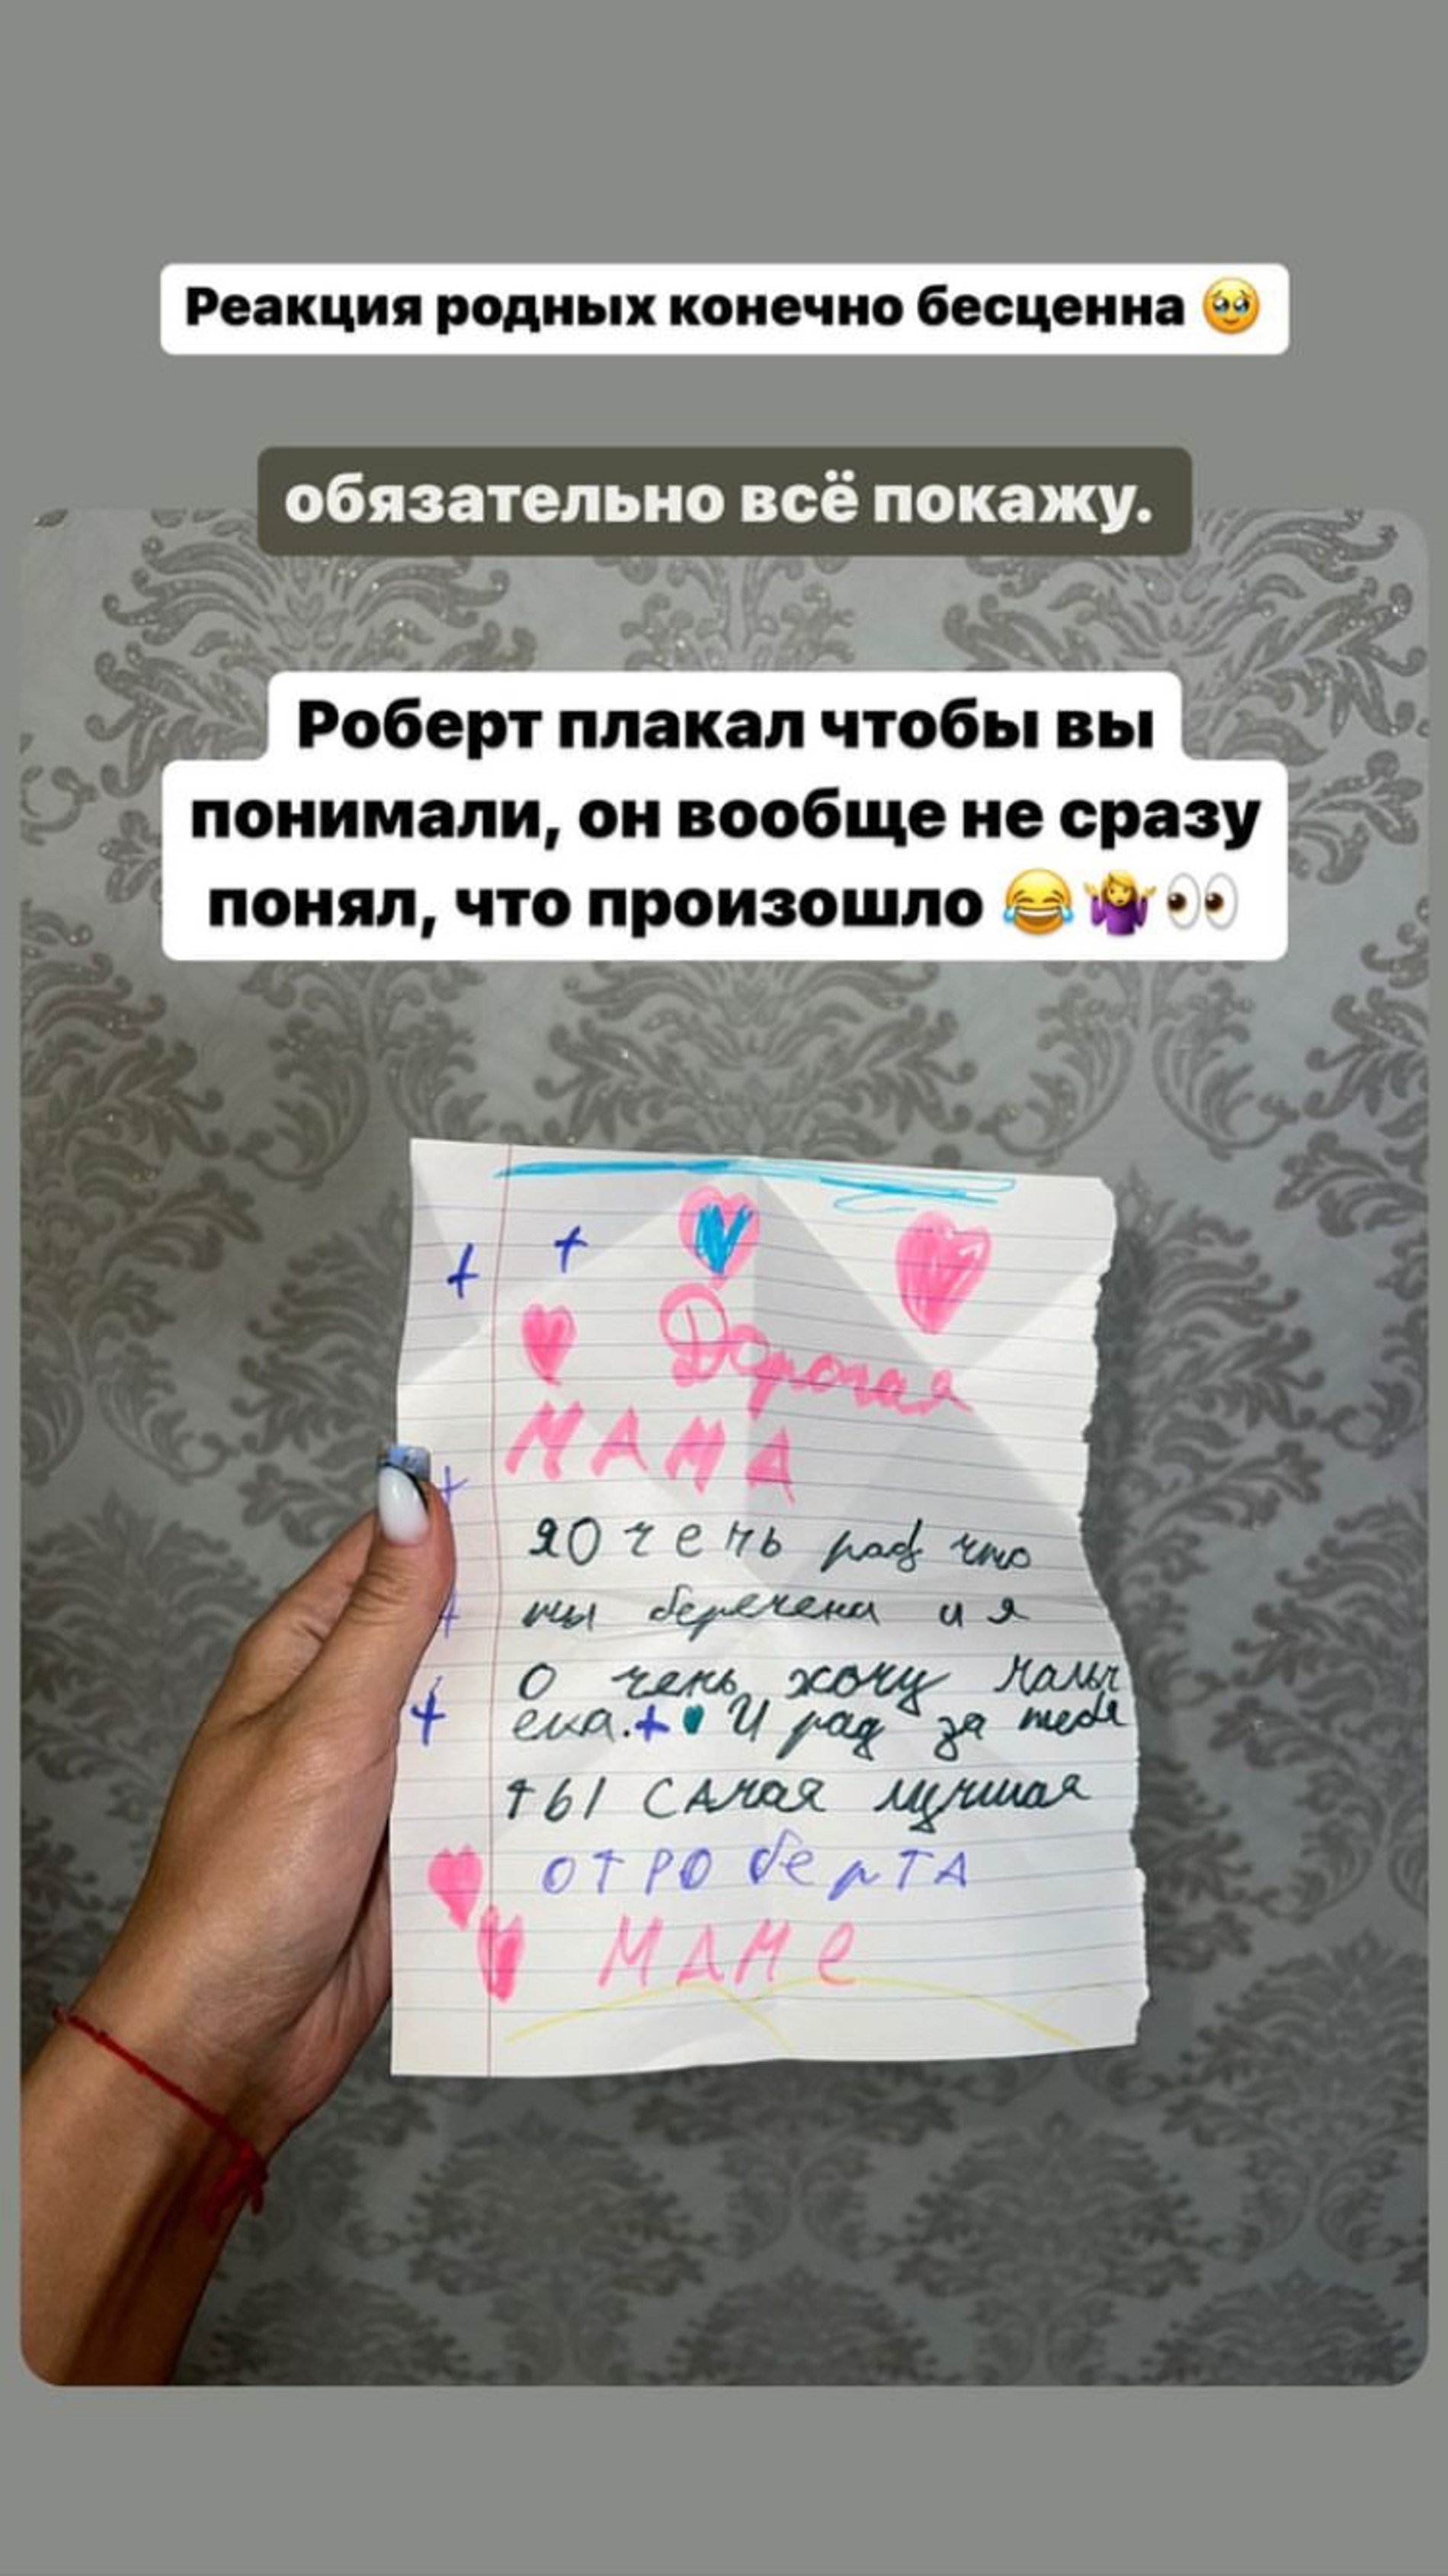 Реакция родных конечно бесценна 🥹
обязательно всё покажу.
Роберт плакал чтобы вы
понимали, он вообще не сразу
понял, что произошло 😂🤷‍♀️👀
Дорогая
МАМА
я Очень рад что
ты беремена и я
О чень хочу мальч
ека. И рад за тебя
ты САмая лучшая
ОТ РОберТА
МАМе